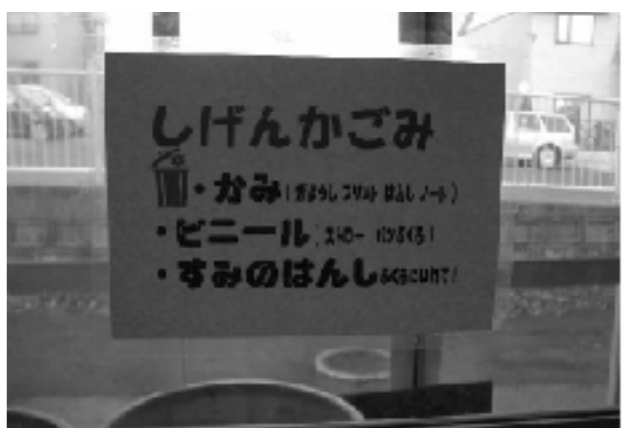 しげんかごみ
・かみ(がようし プリント はんし ノート)
・ビニール(ストロー
・すみのはんし ふくろにいれて!